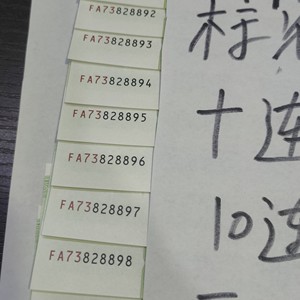 FA73828892
FA73828893
FA73828894
FA73828895
FA73828896
FA73828897
FA73828898
标
十连
10连